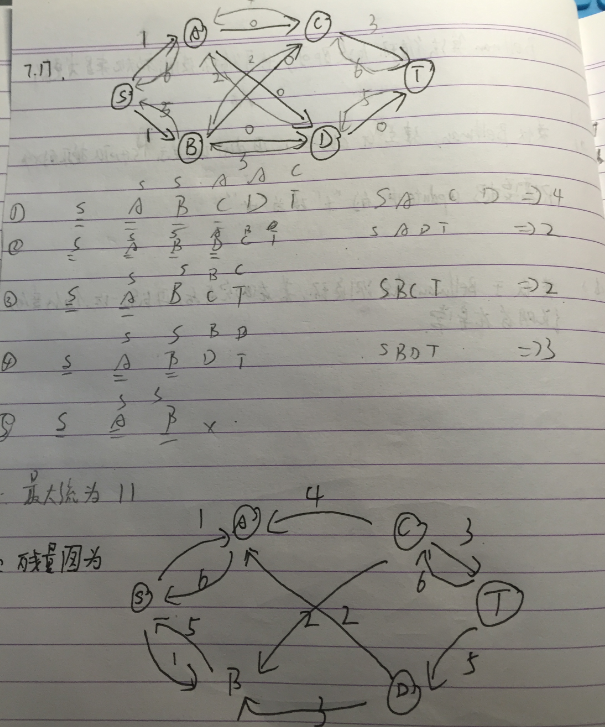 7.17.
1 A 0 C 3
S 6 2 2 0 6 T
5 0 5
1 B 0 D 0
3
S S A A C
① S A B C D T S A C D ⇒ 4
S S A B D
② S A B D C T S A D T ⇒ 2
S S B C
③ S A B C T S B C T ⇒ 2
S S B D
④ S A B D T S B D T ⇒ 3
S S
⑤ S A B ×
最大流为 11
残量图为
1 A 4 C 3
S 6 6 T
5 2 2
1 B 3 D 5